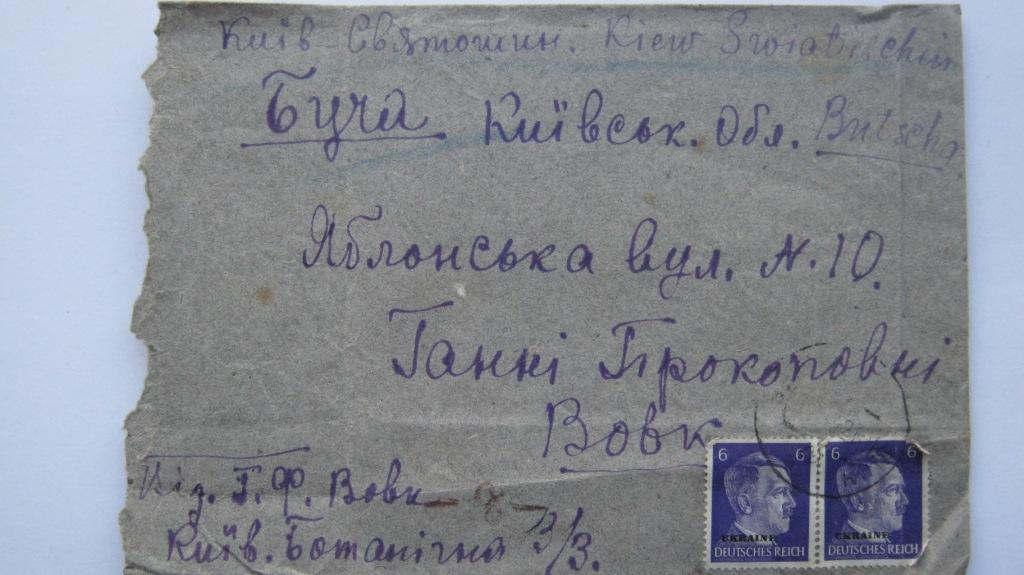 Київ Святошин. Kiew Swiatoschin
Буча Київськ. Обл. Butscha
Яблонська вул. N. 10.
Ганні Прокоповні
Вовк
Від. Г. Ф. Вовк
Київ. Ботанічна 3/3.
6 6 6 6
UKRAINE UKRAINE
DEUTSCHES REICH DEUTSCHES REICH